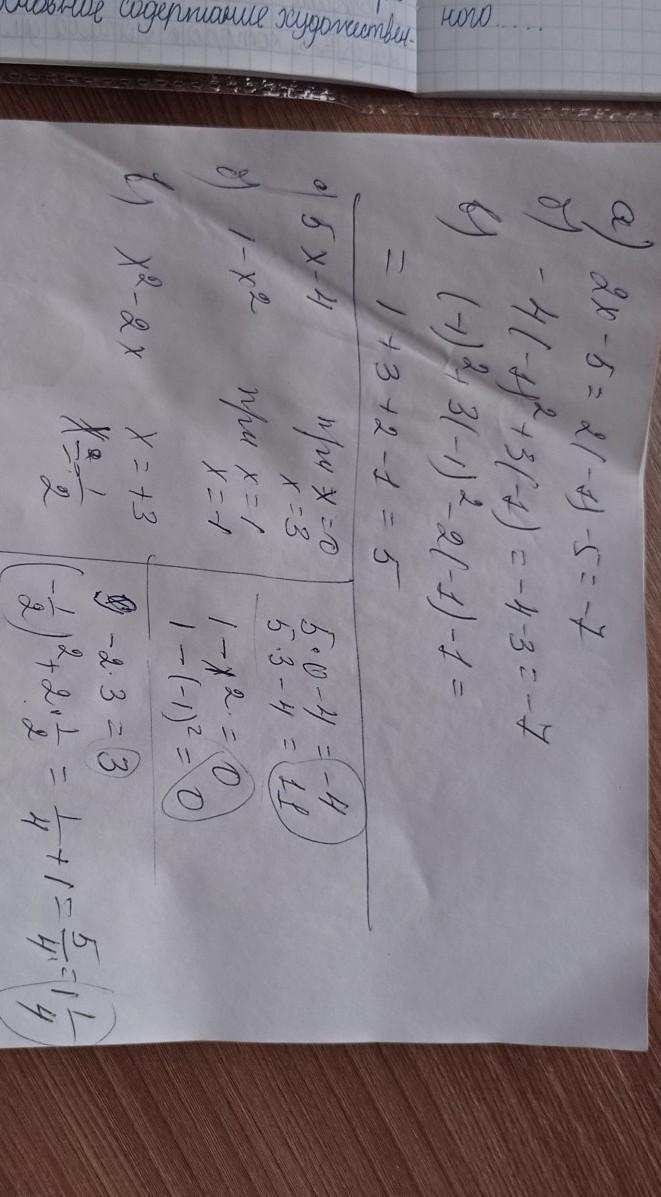 основное содержание художествен-
ного....
а) 2x - 5 = 2(-1) - 5 = -7
б) -4(-1)² + 3(-1) = -4 - 3 = -7
в) (-1)² + 3(-1)² - 2(-1) - 1 =
= 1 + 3 + 2 - 1 = 5
а) 5x - 4 при x = 0 5·0 - 4 = -4
x = 3 5·3 - 4 = 11
б) 1 - x² при x = 1 1 - 1² = 0
x = -1 1 - (-1)² = 0
в) x² - 2x x = +3 9 - 2·3 = 3
x = -1/2 (-1/2)² + 2·1/2 = 1/4 + 1 = 5/4 = 1 1/4